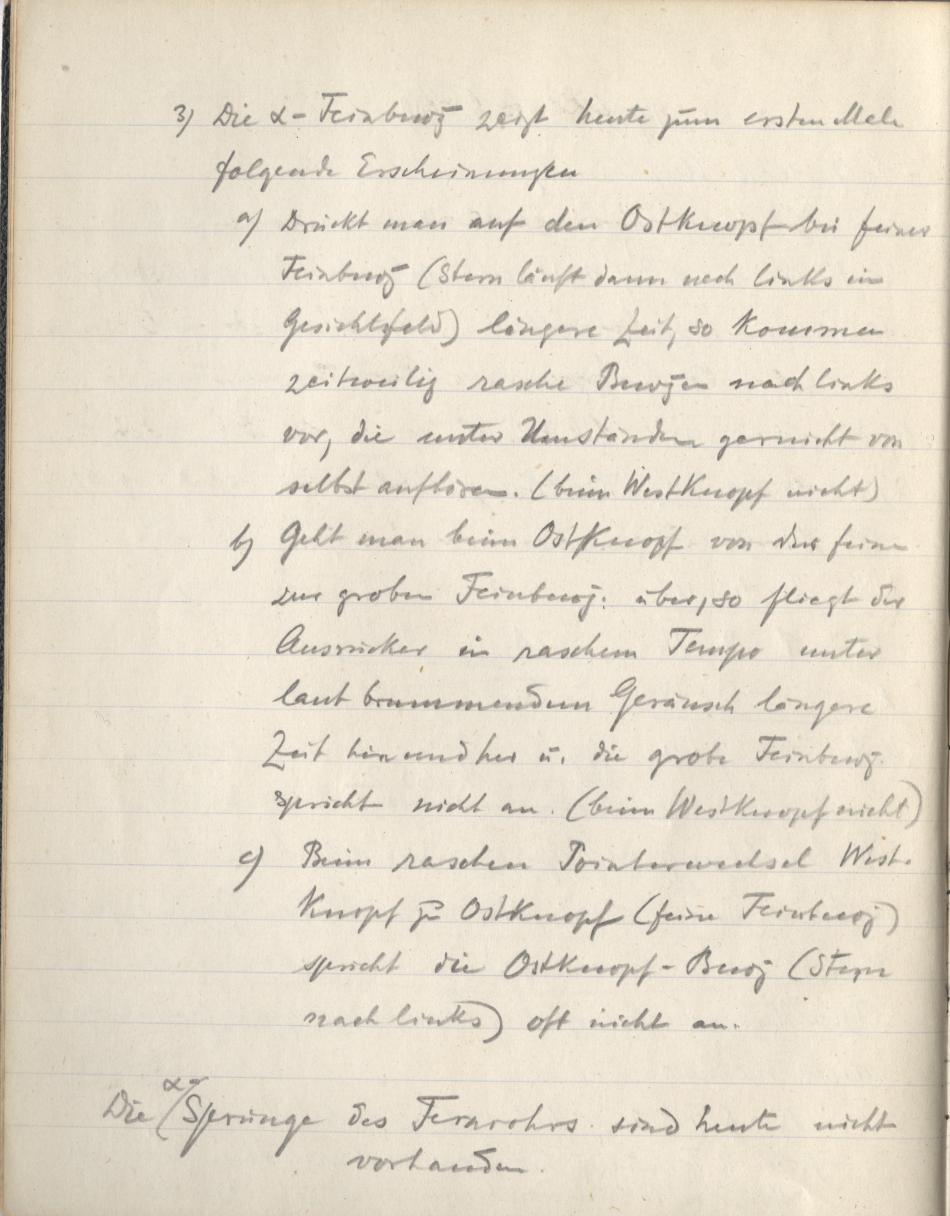 3) Die α-Feinbewg zeigt heute zum ersten Male
folgende Erscheinungen
a) Drückt man auf den Ostknopf bei feiner
Feinbewg (Stern läuft dann nach links im
Gesichtsfeld) längere Zeit, so kommen
zeitweilig rasche Bewgen nach links
vor, die unter Umständen garnicht von
selbst aufhören. (beim Westknopf nicht)
b) Geht man beim Ostknopf von der feinen
zur groben Feinbewg. über, so fliegt der
Ausrücker in raschem Tempo unter
laut brummendem Geräusch längere
Zeit hin und her u. die grobe Feinbewg.
spricht nicht an. (beim Westknopf nicht)
c) Beim raschen Pointerwechsel West-
knopf zu Ostknopf (feine Feinbewg)
spricht die Ostknopf-Bewg (Stern
nach links) oft nicht an.
Die α-Sprünge des Fernrohrs sind heute nicht
vorhanden.